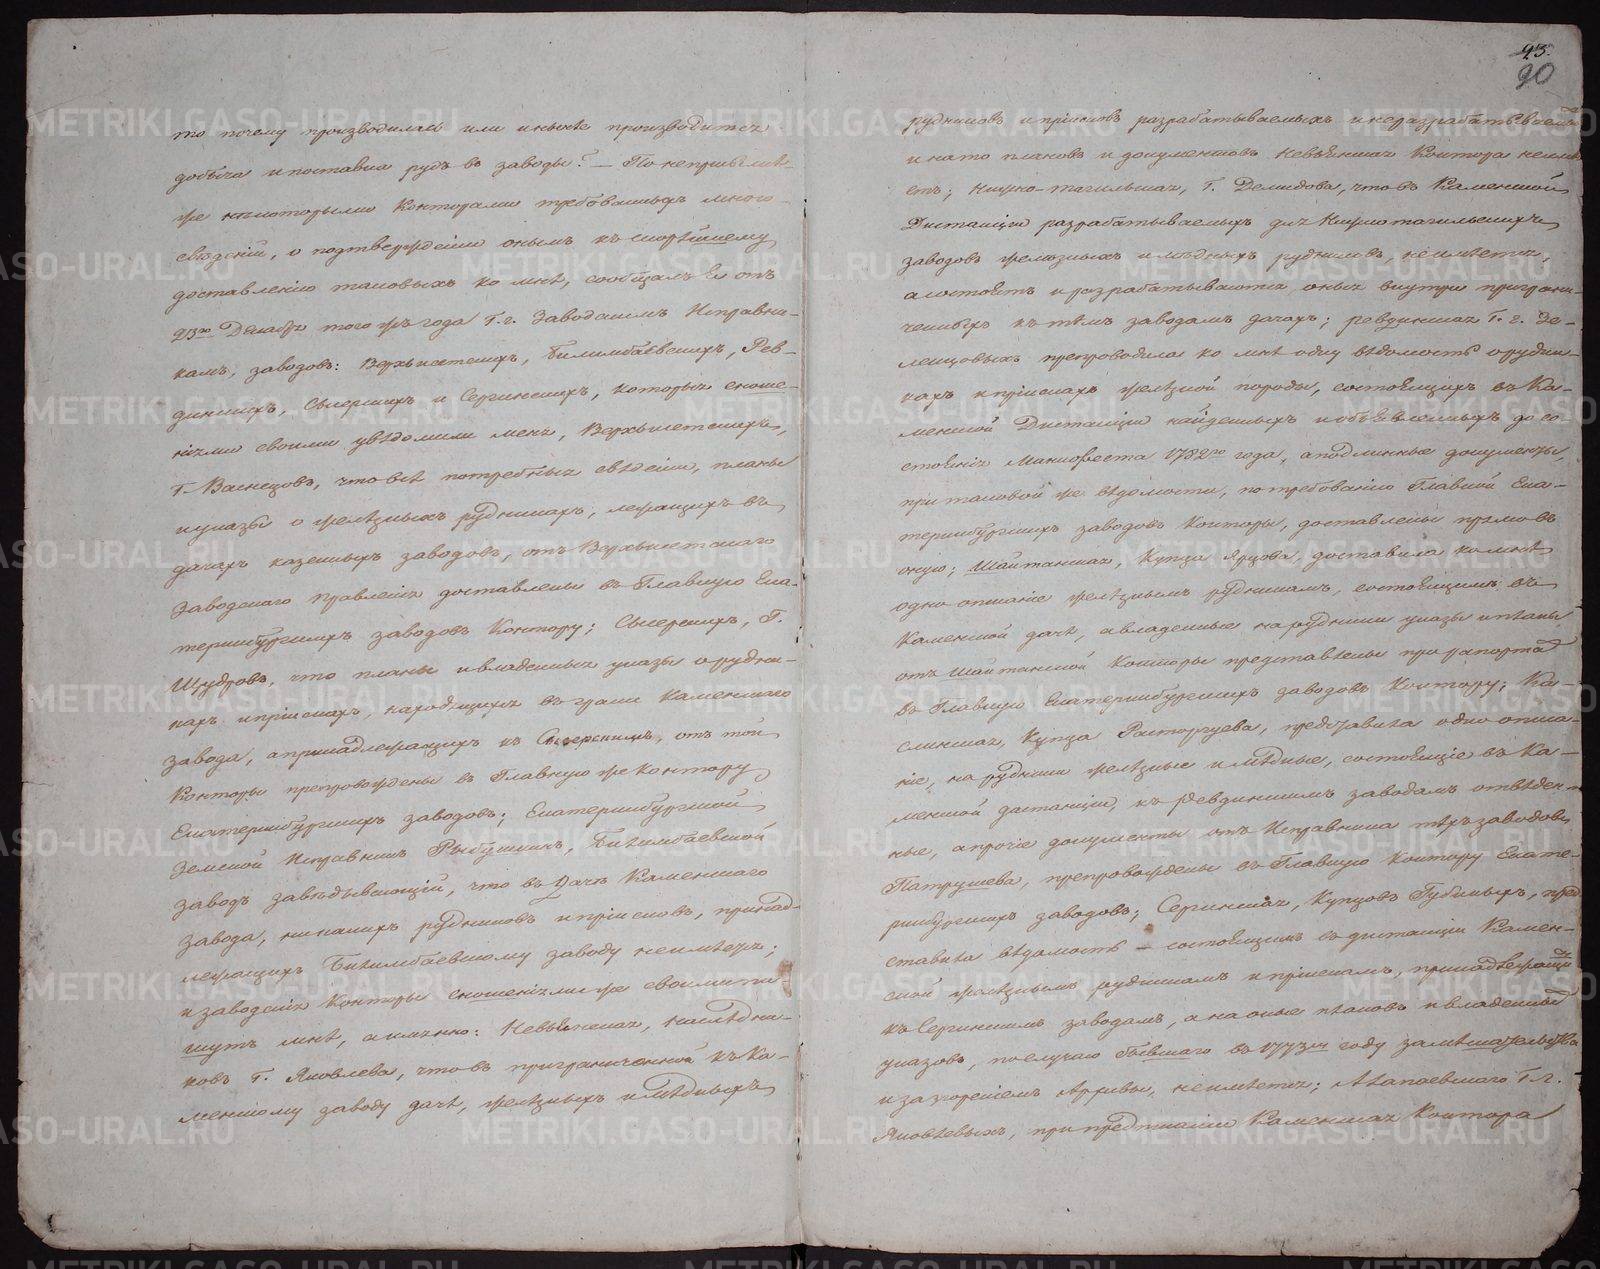 то почему производилась или иныне производится
добыча и поставка рудъ въ заводы? — По неприсылке
же некоторыми Конторами требованныхъ много
сведѣній, о подтвержденіи онымъ къ скорѣйшему
доставленію таковыхъ ко мнѣ, сообщалъ Я отъ
23го Декабря того жъ года Г.г. Заводскимъ Исправни-
камъ, заводовъ: Верхъисетскихъ, Билимбаевскихъ, Рев-
динскихъ, Сысерскихъ и Сергинскихъ, которыя сноше-
ніями своими увѣдомили меня, Верхъисетскихъ,
Г. Васнецовъ, что всѣ потребныя свѣденіи, планы
и указы о желѣзныхъ рудникахъ, лежащихъ въ
дачахъ казенныхъ заводовъ, отъ Верхъисетскаго
Заводскаго Правленія доставлены въ Главную Ека-
теринбургскихъ заводовъ Контору; Сысерскихъ, Г.
Щудровъ, что планы и владенныя указы о рудни-
кахъ и пріискахъ, находящихся въ грани Каменскаго
завода, а принадлежащихъ къ Сысерскимъ, отъ той
Конторы препровождены въ Главную же Контору
Екатеринбургскихъ заводовъ; Екатеринбургской
Земской Исправникъ Рыбушкинъ, Билимбаевской
заводъ завѣдывающій, что въ Дачѣ Каменскаго
завода, никакихъ рудниковъ и пріисковъ, принад-
лежащихъ Билимбаевскому заводу неимѣетъ;
и заводскія Конторы сношеніями же своими пи-
шутъ мнѣ, а имянно: Невьянская, наслѣдни-
ковъ Г. Яковлева, что въ приграниченной къ Ка-
менскому заводу дачѣ, желѣзныхъ и мѣдныхъ
93.
90
рудниковъ и пріисковъ разрабатываемыхъ и неразрабатываем
и на то плановъ и документовъ Невьянская Контора неимѣ
етъ; Нижно-тагильская, Г. Демидова, что въ Каменской
Дистанціи разрабатываемыхъ для Нижнотагильскихъ
заводовъ желѣзныхъ и мѣдныхъ рудниковъ, неимѣется,
а состоятъ и разрабатываются оныя внутри приграни-
ченныхъ къ тѣмъ заводамъ дачахъ; Ревдинская Г. г. Зе-
ленцовыхъ препроводила ко мнѣ одну вѣдомость о рудни-
кахъ и пріискахъ желѣзной породы, состоящихъ въ Ка-
менской Дистанціи найденныхъ и объявленныхъ до со-
стоянія Манифеста 1782го года, а подлинные документы,
при таковой же вѣдомости, по требованію Главной Ека-
теринбургскихъ заводовъ Конторы, доставлены прямо въ
оную; Шайтанская, Купца Ярцова, доставила ко мнѣ
одно описаніе желѣзнымъ рудникамъ, состоящимъ въ
Каменской дачѣ, а владенные на рудники указы и планы
отъ Шайтанской Конторы представлены при рапортѣ
въ Главную Екатеринбургскихъ заводовъ Контору; Ка-
слинская, Купца Расторгуева, представила одно описа-
ніе, на рудники желѣзные и мѣдные, состоящіе въ Ка-
менской дистанціи, къ Ревдинскимъ заводамъ отвѣден-
ные, а прочіе документы отъ Исправника тѣхъ заводовъ
Патрушева, препровождены въ Главную Контору Екате-
ринбургскихъ заводовъ; Сергинская, Купцовъ Губиныхъ, пред
ставила вѣдомость — состоящимъ въ дистанціи Камен-
ской желѣзнымъ рудникамъ и пріискамъ, принадлежащи
къ Сергинскимъ заводамъ, а на оные плановъ и владенныхъ
указовъ, по случаю бывшаго въ 1773м году замѣшательства
и за згорѣніемъ Архивы, неимѣется; Алапаевскаго Г. г.
Яковлевыхъ, при предписаніи Каменская Контора